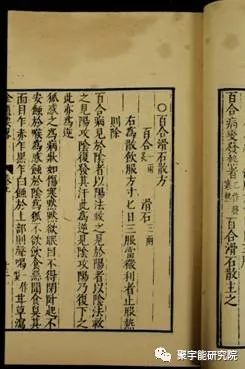 百合病變發熱者一作發寒熱百合滑石散主之
○百合滑石散方
百合一兩炙 滑石三兩
右為散飲服方寸匕日三服當微利者止服熱
則除
百合病見於陰者以陽法救之見於陽者以陰法救
之見陽攻陰復發其汗此為逆見陰攻陽乃復下之
此亦為逆
狐惑之為病狀如傷寒默默欲眠目不得閉臥起不
安蝕於喉為惑蝕於陰為狐不欲飲食惡聞食臭其
面目乍赤乍黑乍白蝕於上部則聲喝一作嗄甘草瀉
聚宇能研究院